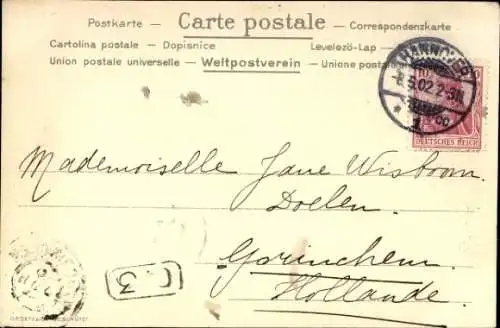 Postkarte — Carte postale — Correspondenzkarte
Cartolina postale — Dopisnice
Levelező-Lap
Union postale universelle — Weltpostverein — Unione postale
HANNOVER
5.02.2-3N.
1
DEUTSCHES REICH
Mademoiselle Jane Wisboom.
Doelen.
Gorinchem.
Hollande.
C 3